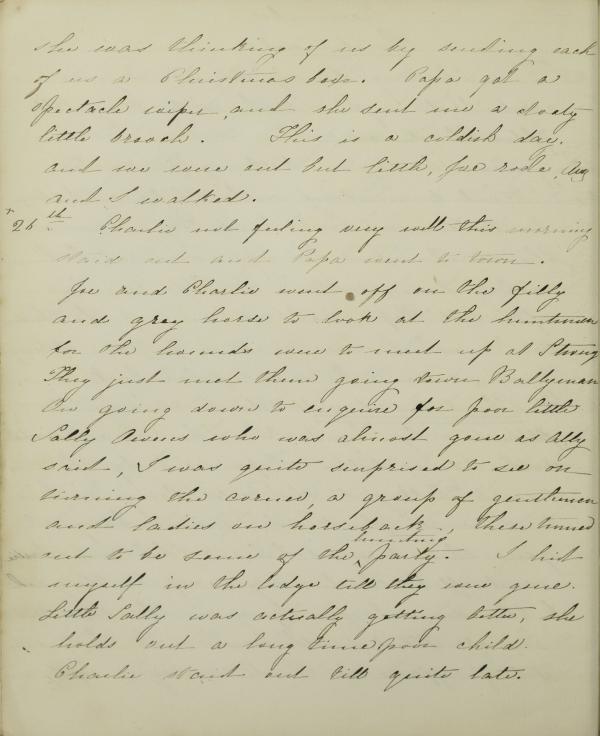 she was thinking of us by sending each
of us a Christmas box. Papa got a
spectacle wiper, and she sent me a
little brooch. This is a coldish day,
and we were out but little, Joe rode,
and I walked.
26th Charlie not feeling very well this morning
staid out and Papa went to town.
Joe and Charlie went off on the filly
and grey horse to look at the huntsmen
for the hounds were to meet up at
They just met them going down Ballyman
On going down to enquire for poor little
Sally Owens who was almost gone as Ally
said, I was quite surprised to see on
turning the corner, a group of gentlemen
and ladies on horseback, these turned
out to be some of the hunting party. I hid
myself in the lodge till they were gone.
Little Sally was actually getting better, she
holds out a long time poor child.
Charlie staid out till quite late.